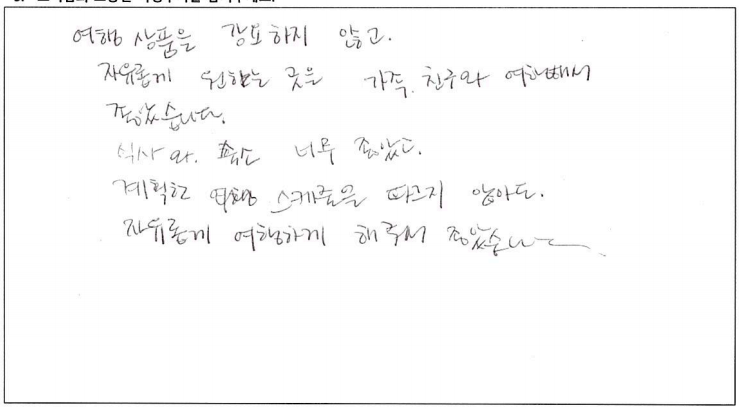 여행 상품을 강요하지 않고.
자유롭게 원하는 곳을 가족, 친구와 여행해서
좋았습니다.
식사와. 너무 좋았고.
계획한 여행 스케줄을 따르지 않아도.
자유롭게 여행하게 해주서 좋았습니다